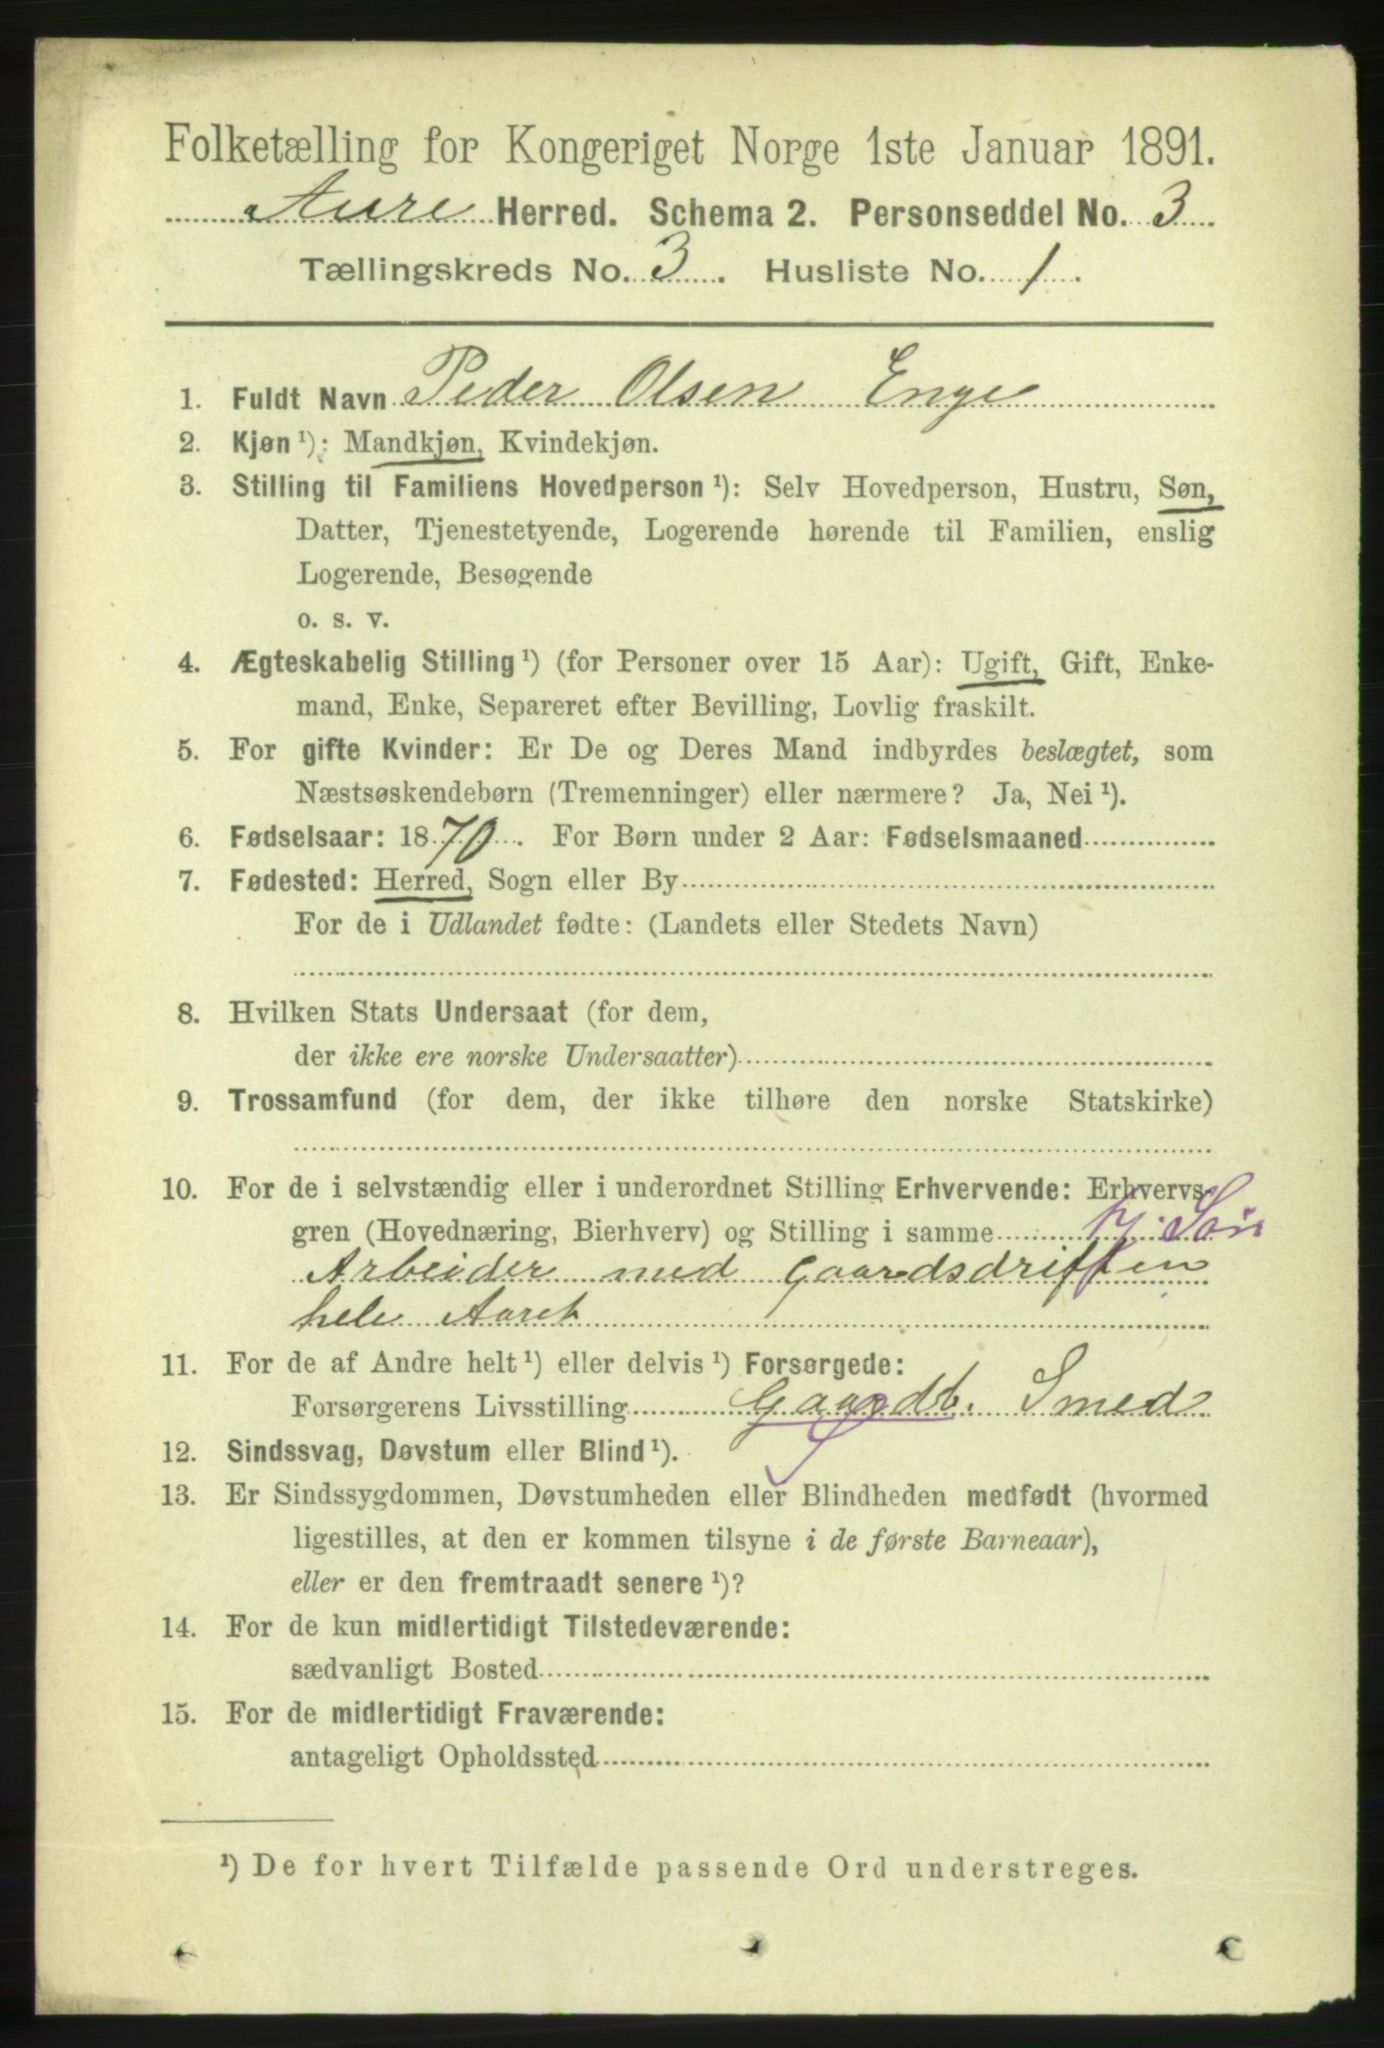 Folketælling for Kongeriget Norge 1ste Januar 1891.
Aure Herred. Schema 2. Personseddel No. 3
Tællingskreds No. 3. Husliste No. 1.
1. Fuldt Navn Peder Olsen Enge
2. Kjøn ¹): Mandkjøn, Kvindekjøn.
3. Stilling til Familiens Hovedperson ¹): Selv Hovedperson, Hustru, Søn,
Datter, Tjenestetyende, Logerende hørende til Familien, enslig
Logerende, Besøgende
o. s. v.
4. Ægteskabelig Stilling ¹) (for Personer over 15 Aar): Ugift, Gift, Enke-
mand, Enke, Separeret efter Bevilling, Lovlig fraskilt.
5. For gifte Kvinder: Er De og Deres Mand indbyrdes beslægtet, som
Næstsøskendebørn (Tremenninger) eller nærmere? Ja, Nei ¹).
6. Fødselsaar: 1870. For Børn under 2 Aar: Fødselsmaaned
7. Fødested: Herred, Sogn eller By
For de i Udlandet fødte: (Landets eller Stedets Navn)
8. Hvilken Stats Undersaat (for dem,
der ikke ere norske Undersaatter)
9. Trossamfund (for dem, der ikke tilhøre den norske Statskirke)
10. For de i selvstændig eller i underordnet Stilling Erhvervende: Erhvervs-
gren (Hovednæring, Bierhverv) og Stilling i samme Søn
Arbeider med Gaardsdriften
hele Aaret
11. For de af Andre helt ¹) eller delvis ¹) Forsørgede:
Forsørgerens Livsstilling Gaardb. Smed
12. Sindssvag, Døvstum eller Blind ¹).
13. Er Sindssygdommen, Døvstumheden eller Blindheden medfødt (hvormed
ligestilles, at den er kommen tilsyne i de første Barneaar),
eller er den fremtraadt senere ¹)?
14. For de kun midlertidigt Tilstedeværende:
sædvanligt Bosted
15. For de midlertidigt Fraværende:
antageligt Opholdssted
¹) De for hvert Tilfælde passende Ord understreges.